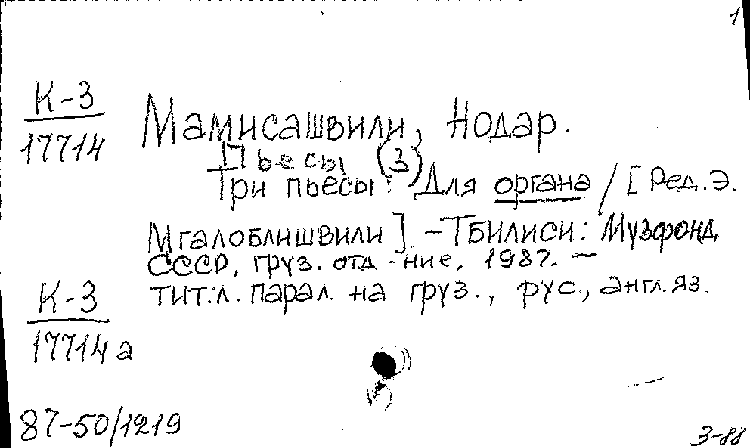 1
К-3
17714
Мамисашвили, Нодар.
Пьесы (3)
Три пьесы: Для органа / [Ред. Э.
Мгалоблишвили]. - Тбилиси: Музфонд
СССР, груз. отд-ние, 1987. —
тит. л. парал. на груз., рус., англ. яз.
К-3
17714 а
87-50/1219
3-88